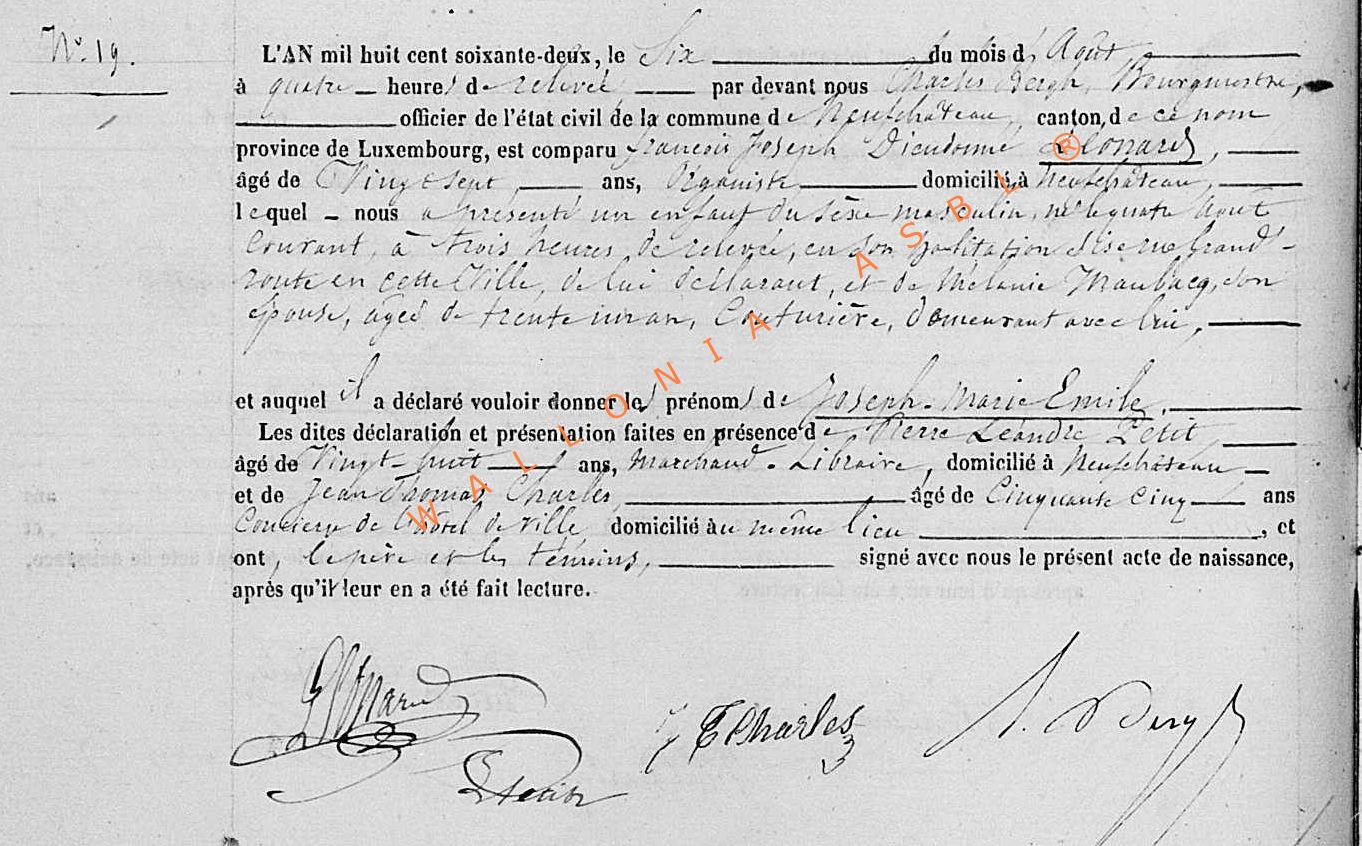 N° 19.
L'AN mil huit cent soixante-deux, le Six du mois d' Août,
à quatre heures de relevée par devant nous Charles Bergh, Bourgmestre,
officier de l'état civil de la commune de Neufchâteau, canton, de ce nom
province de Luxembourg, est comparu françois Joseph Dieudonné Léonard,
âgé de Vingt Sept, ans, Organiste domicilié à Neufchâteau,
lequel nous a présenté un enfant du sèxe masculin, né le quatre Août
Courant, à trois heures de relevée, en son habitation Sise rue Grand'-
route en cette Ville, de lui déclarant, et de Mélanie Maubacq, son
épouse, agée de trente un an, Couturière, demeurant avec lui,
et auquel il a déclaré vouloir donner les prénoms de Joseph-Marie Emile.
Les dites déclaration et présentation faites en présence de Pierre Léandre Petit,
âgé de Vingt-huit ans, Marchand-Libraire, domicilié à Neufchâteau
et de Jean Thomas Charles, âgé de Cinquante cinq ans
Concierge de l'hôtel de ville, domicilié au même lieu, et
ont, le père et les témoins, signé avec nous le présent acte de naissance,
après qu'il leur en a été fait lecture.
WALLONIA ASBL ®
T Charles